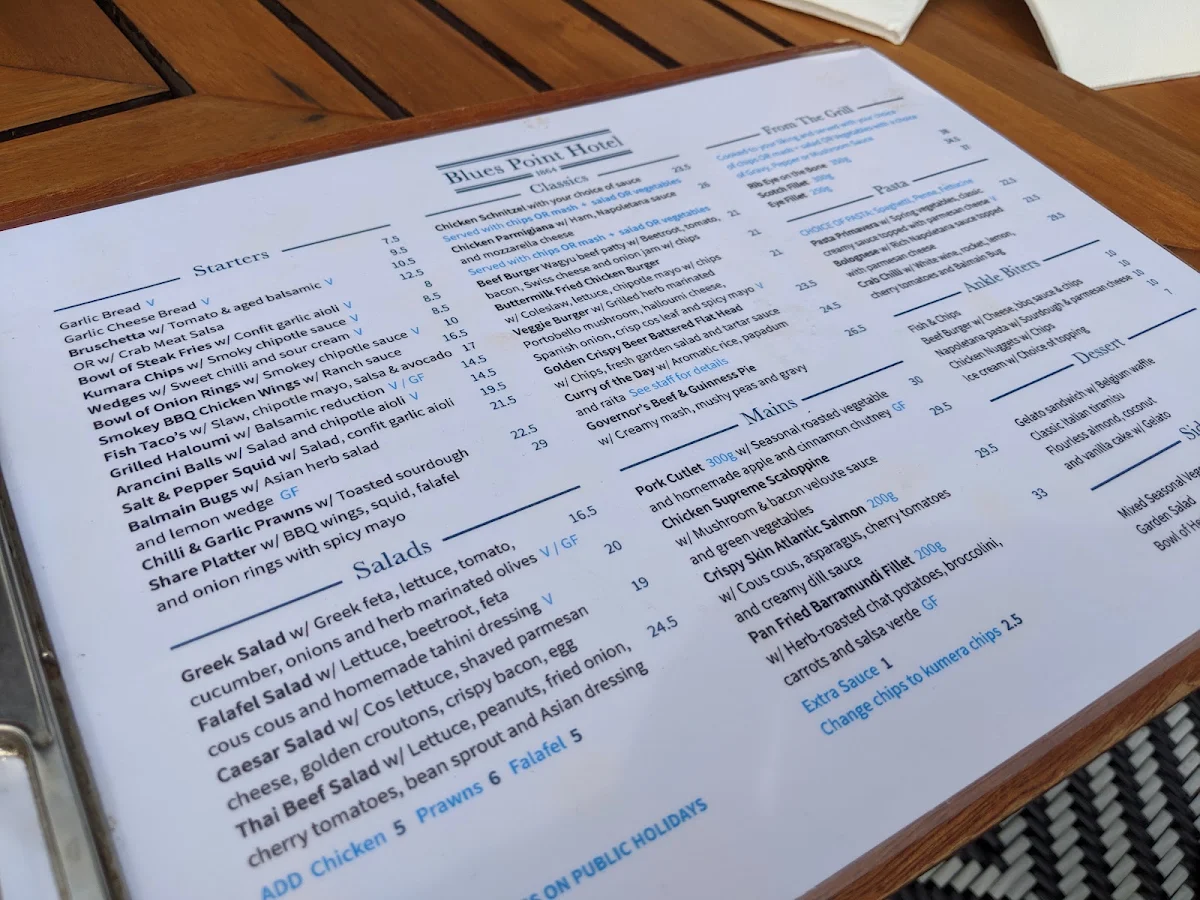 Blues Point Hotel
1864
Starters
Garlic Bread V 7.5
Garlic Cheese Bread V 9.5
Bruschetta w/ Tomato & aged balsamic V 10.5
OR w/ Crab Meat Salsa 12.5
Bowl of Steak Fries w/ Confit garlic aioli V 8
Kumara Chips w/ Smoky chipotle sauce V 8.5
Wedges w/ Sweet chilli and sour cream V 8.5
Bowl of Onion Rings w/ Smokey chipotle sauce V 10
Smokey BBQ Chicken Wings w/ Ranch sauce 16.5
Fish Taco's w/ Slaw, chipotle mayo, salsa & avocado 17
Grilled Haloumi w/ Balsamic reduction V / GF 14.5
Arancini Balls w/ Salad and chipotle aioli V 14.5
Salt & Pepper Squid w/ Salad, confit garlic aioli 19.5
Balmain Bugs w/ Asian herb salad 21.5
and lemon wedge GF
Chilli & Garlic Prawns w/ Toasted sourdough 22.5
Share Platter w/ BBQ wings, squid, falafel 29
and onion rings with spicy mayo
Salads
Greek Salad w/ Greek feta, lettuce, tomato, 16.5
cucumber, onions and herb marinated olives V / GF
Falafel Salad w/ Lettuce, beetroot, feta 20
cous cous and homemade tahini dressing V
Caesar Salad w/ Cos lettuce, shaved parmesan 19
cheese, golden croutons, crispy bacon, egg
Thai Beef Salad w/ Lettuce, peanuts, fried onion, 24.5
cherry tomatoes, bean sprout and Asian dressing
ADD Chicken 5 Prawns 6 Falafel 5
Classics
Chicken Schnitzel with your choice of sauce 23.5
Served with chips OR mash + salad OR vegetables
Chicken Parmigiana w/ Ham, Napoletana sauce 26
and mozzarella cheese
Served with chips OR mash + salad OR vegetables
Beef Burger Wagyu beef patty w/ Beetroot, tomato, 21
bacon, Swiss cheese and onion jam w/ chips
Buttermilk Fried Chicken Burger 21
w/ Coleslaw, lettuce, chipotle mayo w/ chips
Veggie Burger w/ Grilled herb marinated 21
Portobello mushroom, halloumi cheese,
Spanish onion, crisp cos leaf and spicy mayo V
Golden Crispy Beer Battered Flat Head 23.5
w/ Chips, fresh garden salad and tartar sauce
Curry of the Day w/ Aromatic rice, papadum 24.5
and raita See staff for details
Governor's Beef & Guinness Pie 26.5
w/ Creamy mash, mushy peas and gravy
Mains
Pork Cutlet 300g w/ Seasonal roasted vegetable 30
and homemade apple and cinnamon chutney GF
Chicken Supreme Scaloppine 29.5
w/ Mushroom & bacon veloute sauce
and green vegetables
Crispy Skin Atlantic Salmon 200g 29.5
w/ Cous cous, asparagus, cherry tomatoes
and creamy dill sauce
Pan Fried Barramundi Fillet 200g 33
w/ Herb-roasted chat potatoes, broccolini,
carrots and salsa verde GF
Extra Sauce 1
Change chips to kumera chips 2.5
From The Grill
Cooked to your liking and served with your choice
of chips OR mash + salad OR vegetables with a choice
of Gravy, Pepper or Mushroom Sauce
Rib Eye on the Bone 350g
Scotch Fillet 300g
Eye Fillet 250g
Pasta
CHOICE OF PASTA: Spaghetti, Penne, Fettucine
Pasta Primavera w/ Spring vegetables, classic 22.5
creamy sauce topped with parmesan cheese V
Bolognese w/ Rich Napoletana sauce topped 23.5
with parmesan cheese
Crab Chilli w/ White wine, rocket, lemon, 28.5
cherry tomatoes and Balmain Bug
Ankle Biters
Fish & Chips 10
Beef Burger w/ Cheese, bbq sauce & chips 10
Napoletana pasta w/ Sourdough & parmesan cheese 10
Chicken Nuggets w/ Chips 10
Ice cream w/ Choice of topping 7
Dessert
Gelato sandwich w/ Belgium waffle
Classic Italian tiramisu
Flourless almond, coconut
and vanilla cake w/ Gelato
Mixed Seasonal
Garden Salad
Bowl of
ON PUBLIC HOLIDAYS